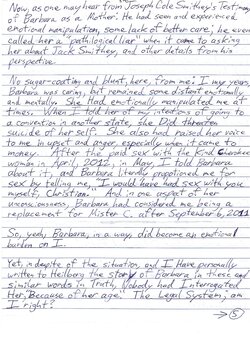 Now, as one may hear from Joseph Cole Smithey's Testimony
of Barbara as a Mother: He had seen and experienced
emotional manipulation, some lack of better care; he even
called her a "pathological liar" when it came to asking
her about Jack Smithey, and other details from his
perspective.
No sugar-coating and blunt, here, from me: In my years,
Barbara was caring, but remained some distant emotionally
and mentally. She Had emotionally manipulated me at
times. When I told her of my intentions of going to
a convention in another state, She Did threaten
suicide of her self. She also had raised her voice
to me in upset and anger, especially when it came to
money. After the paid sex with the Kind Cherokee
woman in April, 2012, in May, I told Barbara
about it, and Barbara literally propositioned me for
sex by telling me, "I would have had sex with you
myself, Christian." And in one aspect of her
unconsciousness, Barbara had considered me being a
replacement for Mister C. after September 6, 2011
So, yeah, Barbara, in a way, did become an emotional
burden on I.
Yet, in despite of the situation, and I Have personally
written to Heilberg the story of Barbara in these and
similar words in Truth, Nobody had Interrogated
Her, "Because of her age." The Legal System, am
I right?
→ 5